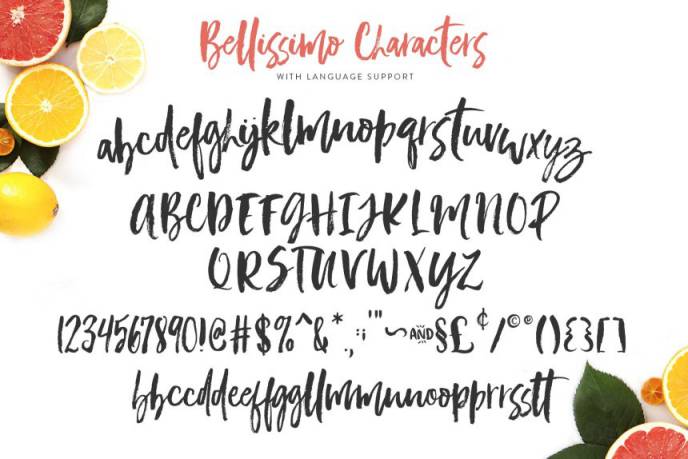 Bellissimo Characters
WITH LANGUAGE SUPPORT
abcdefghijklmnopqrstuvwxyz
ABCDEFGHIJKLMNOP
QRSTUVWXYZ
1234567890!@#$%^&*.,:;'"~AND§£¢/©®(){}[]
bbccddeeffggllmmunnooopprrsstt